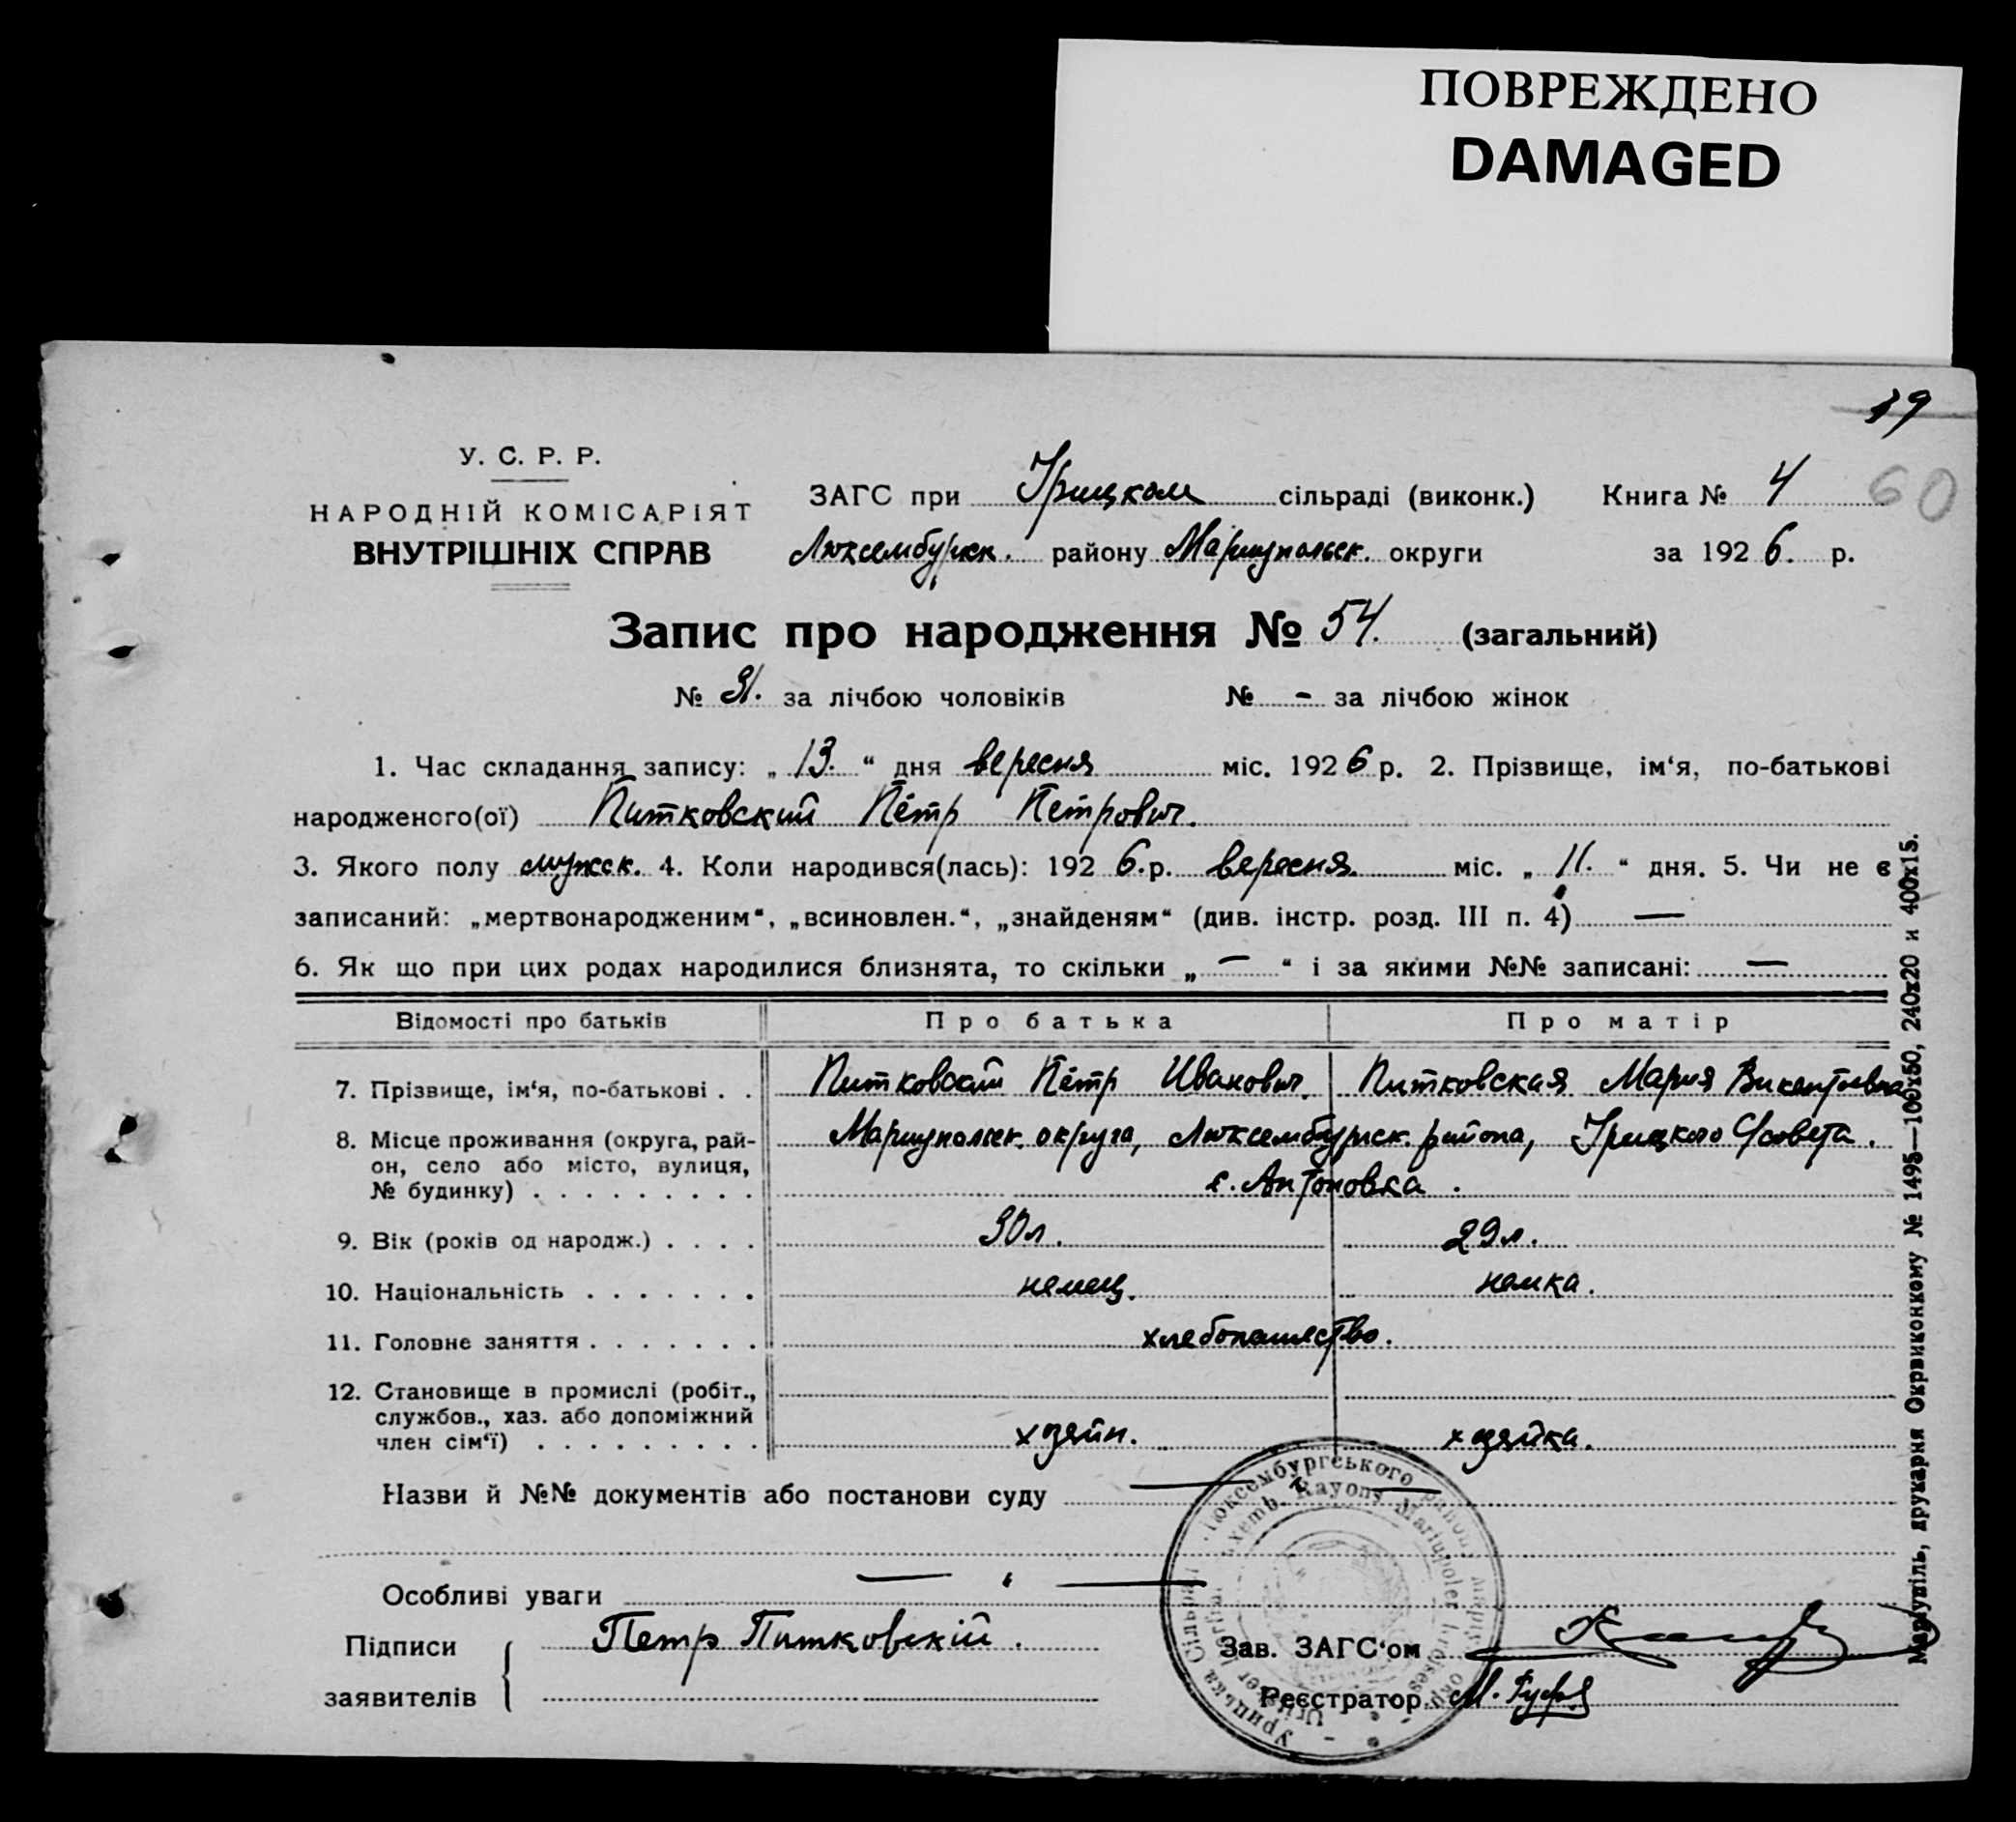 ПОВРЕЖДЕНО
DAMAGED
39
60
У. С. Р. Р.
НАРОДНІЙ КОМІСАРІЯТ
ВНУТРІШНІХ СПРАВ
ЗАГС при Урицком сільраді (виконк.) Книга № 4
Люксембургск. району Мариупольск. округи за 1926. р.
Запис про народження № 54. (загальний)
№ 31. за лічбою чоловіків № - за лічбою жінок
1. Час складання запису: „ 13. “ дня вересня міс. 1926 р. 2. Прізвище, ім‘я, по-батькові
народженого(ої) Питковский Пётр Петрович.
3. Якого полу мужск. 4. Коли народився(лась): 1926. р. вересня міс. „ 11. “ дня. 5. Чи не є
записаний: „мертвонародженим“, „всиновлен.“, „знайденям“ (див. інстр. розд. III п. 4) —
6. Як що при цих родах народилися близнята, то скільки „ — “ і за якими №№ записані: —
Відомості про батьків Про батька Про матір
7. Прізвище, ім‘я, по-батькові . . Питковский Пётр Иванович. Питковская Мария Викентьевна
8. Місце проживання (округа, рай- Мариупольск. округа, Люксембургск. района, Урицкого С/совета.
он, село або місто, вулиця,
№ будинку) . . . . . . . . . с. Антоновка.
9. Вік (років од народж.) . . . . 30 л. 29 л.
10. Національність . . . . . . . немец. немка.
11. Головне заняття . . . . . . . хлебопашество.
12. Становище в промислі (робіт.,
службов., хаз. або допоміжний
член сім‘ї) . . . . . . . . . хозяйн. хозяйка.
Назви й №№ документів або постанови суду — —
Особливі уваги — —
Підписи Петр Питковскій.
заявителів
Зав. ЗАГС‘ом
Реєстратор М.
Урицька Сільрада Люксембургського району Маріуп. окр.
Luxemb. Rayons Mariupoler Kreises
Маріупіль, друкарня Окрвиконкому № 1495—100х50, 240х20 и 400х15.